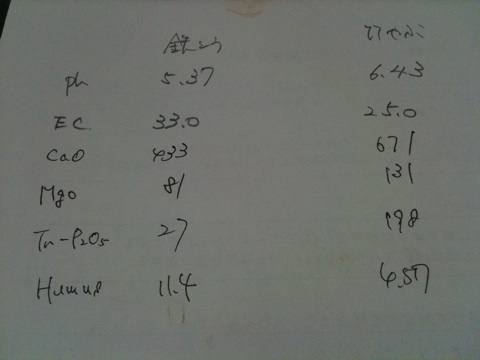 ph 5.37 6.43
EC 33.0 25.0
CaO 433 671
Mgo 81 131
Tn-P2O5 27 198
Humus 11.4 6.57